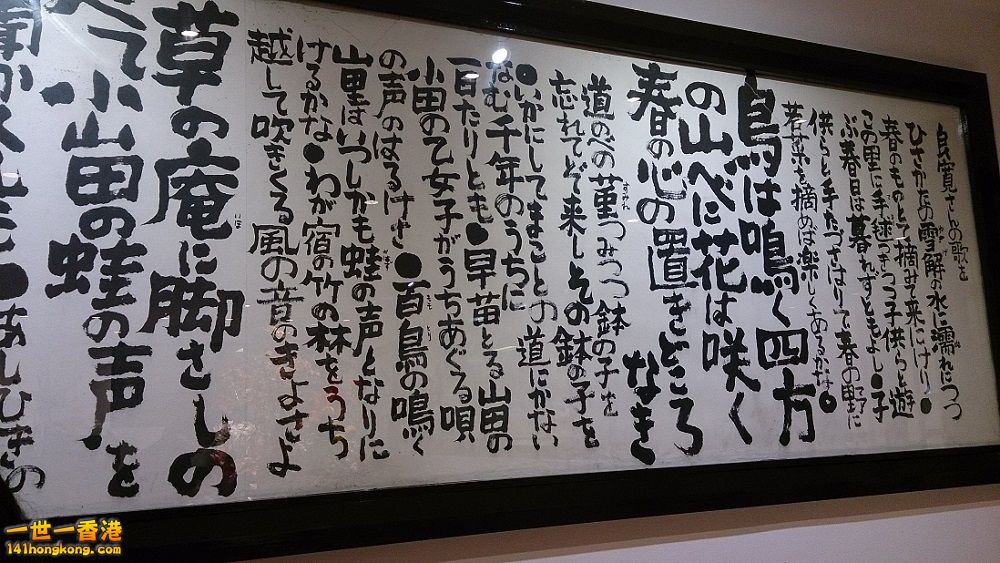 良寛さの歌を
ひさかたの雪解の水に濡れにつつ
春のものとて摘みて来にけり●
この里に手毬つきつつ子供らと遊
ぶ春日は暮れずともよし●子
供らと手たづさはりて春の野に
若菜を摘めば楽しくあるかな●
鳥は鳴く四方
の山べに花は咲く
春の心の置きどころなき
道のべの菫つみつつ鉢の子を
忘れてぞ来しその鉢の子を
●いかにしてまことの道にかない
なむ千年のうちに
一日たりとも●早苗とる山田の
小田の乙女子がうちあぐる唄
の声のはるけさ●百鳥の鳴く
山里はいつしかも蛙の声となりに
けるかな●わが宿の竹の林をうち
越して吹きくる風の音のきよさよ
草の庵に脚さしの
べて小山田の蛙の声を
●あしひきの
一世一香港
141hongkong.com